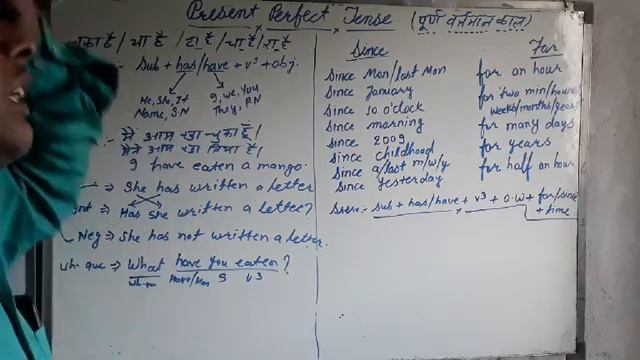 Present Perfect Tense (पूर्ण वर्तमान काल)
चुका है / या है / टा है / या है / रा है
Sub + has/have + v³ + obj.
He, She, It
Name, S.N
I, We, You
They, P.N
मैं आम खा चुका हूँ।
मैंने आम खा लिया है।
I have eaten a mango.
⇒ She has written a letter
Int ⇒ Has she written a letter?
Neg ⇒ She has not written a letter.
Wh. que ⇒ What have you eaten?
wh-qu Have/Has S V3
Since
Since Mon/last Mon
Since January
Since 10 o'clock
Since morning
Since 2009
Since childhood
Since a/last m/w/y
Since yesterday
For
for an hour
for two min/hours
weeks/months/years
for many days
for years
for half an hour
Sub + has/have + v3 + O.W + for/since
+ time